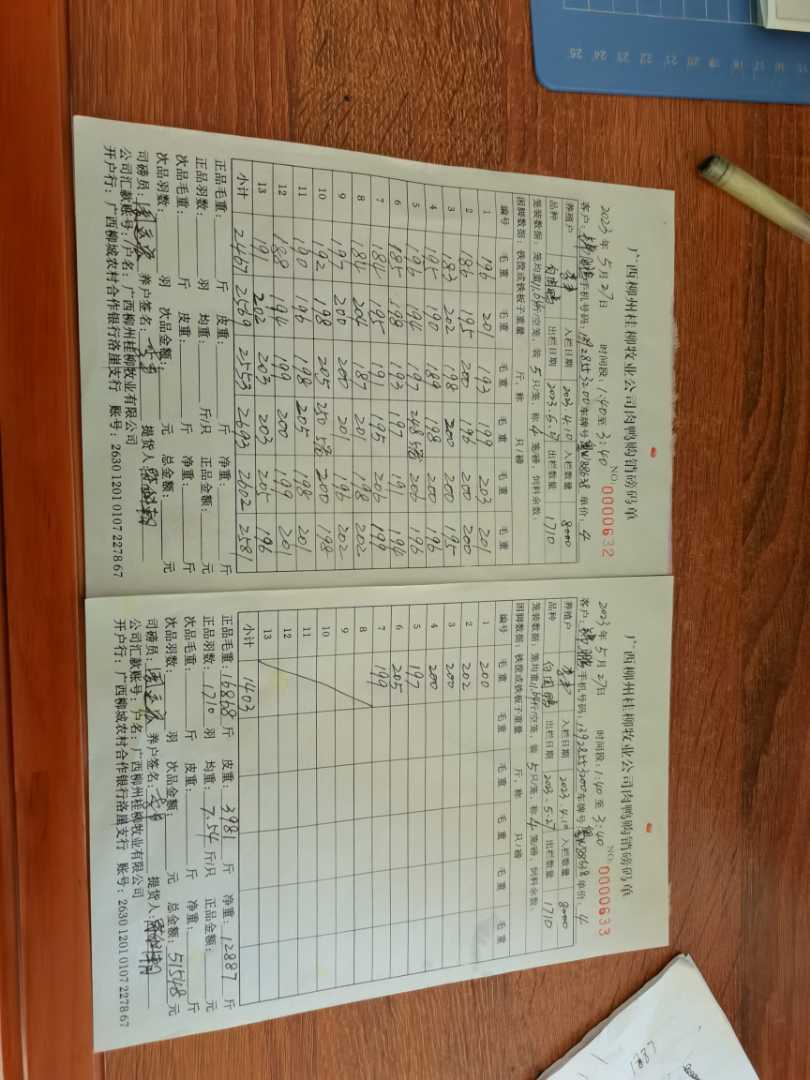 广西柳州桂柳牧业公司肉鸭购销磅码单
2023年5月27日 时间段:1:40至3:40 NO:0000632
客户: 手机号码:13928553200 车牌号: 单价:4
养殖户 入栏日期 2023.4.10 入栏数量 8000
品种 出栏日期 2023.5.27 出栏数量 1710
笼装数据:笼均重11.64斤/空笼,装5只/笼,称4笼/磅,饲料余数:
困脚数据:铁筐或铁板子重量 斤,称 只/磅
编号 毛重 毛重 毛重 毛重 毛重 毛重
1 196 201 193 199 203 201
2 186 195 200 196 200 200
3 183 202 198 200 200 195
4 195 190 189 198 200 196
5 196 194 197 248 5笼 206 196
6 185 198 193 197 191 194
7 184 195 191 195 206 199
8 184 204 187 201 198 202
9 197 200 200 201 196 202
10 192 198 205 250 5笼 200 198
11 190 196 198 205 198 201
12 188 194 199 200 199 201
13 191 202 203 203 205 196
小计 2467 2569 2553 2693 2602 2581
正品毛重: 斤 皮重: 斤 净重: 斤
正品羽数: 羽 均重: 斤/只 正品金额: 元
次品毛重: 斤 皮重: 斤 净重: 斤
次品羽数: 羽 次品金额: 元 总金额: 元
司磅员: 养户签名: 提货人:
公司汇款账号:户名:广西柳州桂柳牧业有限公司
开户行:广西柳城农村合作银行洛崖支行 账号:2630 1201 0107 2278 67
广西柳州桂柳牧业公司肉鸭购销磅码单
2023年5月27日 时间段:1:40至3:40 NO:0000633
客户: 手机号码:13928553200 车牌号: 单价:4
养殖户 入栏日期 2023.4.10 入栏数量 8000
品种 出栏日期 2023.5.27 出栏数量 1710
笼装数据:笼均重11.64斤/空笼,装5只/笼,称4笼/磅,饲料余数:
困脚数据:铁筐或铁板子重量 斤,称 只/磅
编号 毛重 毛重 毛重 毛重 毛重
1 200
2 202
3 200
4 200
5 197
6 205
7 199
8
9
10
11
12
13
小计 1403
正品毛重:16868斤 皮重:3981斤 净重:12887斤
正品羽数:1710羽 均重:7.54斤/只 正品金额: 元
次品毛重: 斤 皮重: 斤 净重: 斤
次品羽数: 羽 次品金额: 元 总金额:51548元
司磅员: 养户签名: 提货人:
公司汇款账号:户名:广西柳州桂柳牧业有限公司
开户行:广西柳城农村合作银行洛崖支行 账号:2630 1201 0107 2278 67